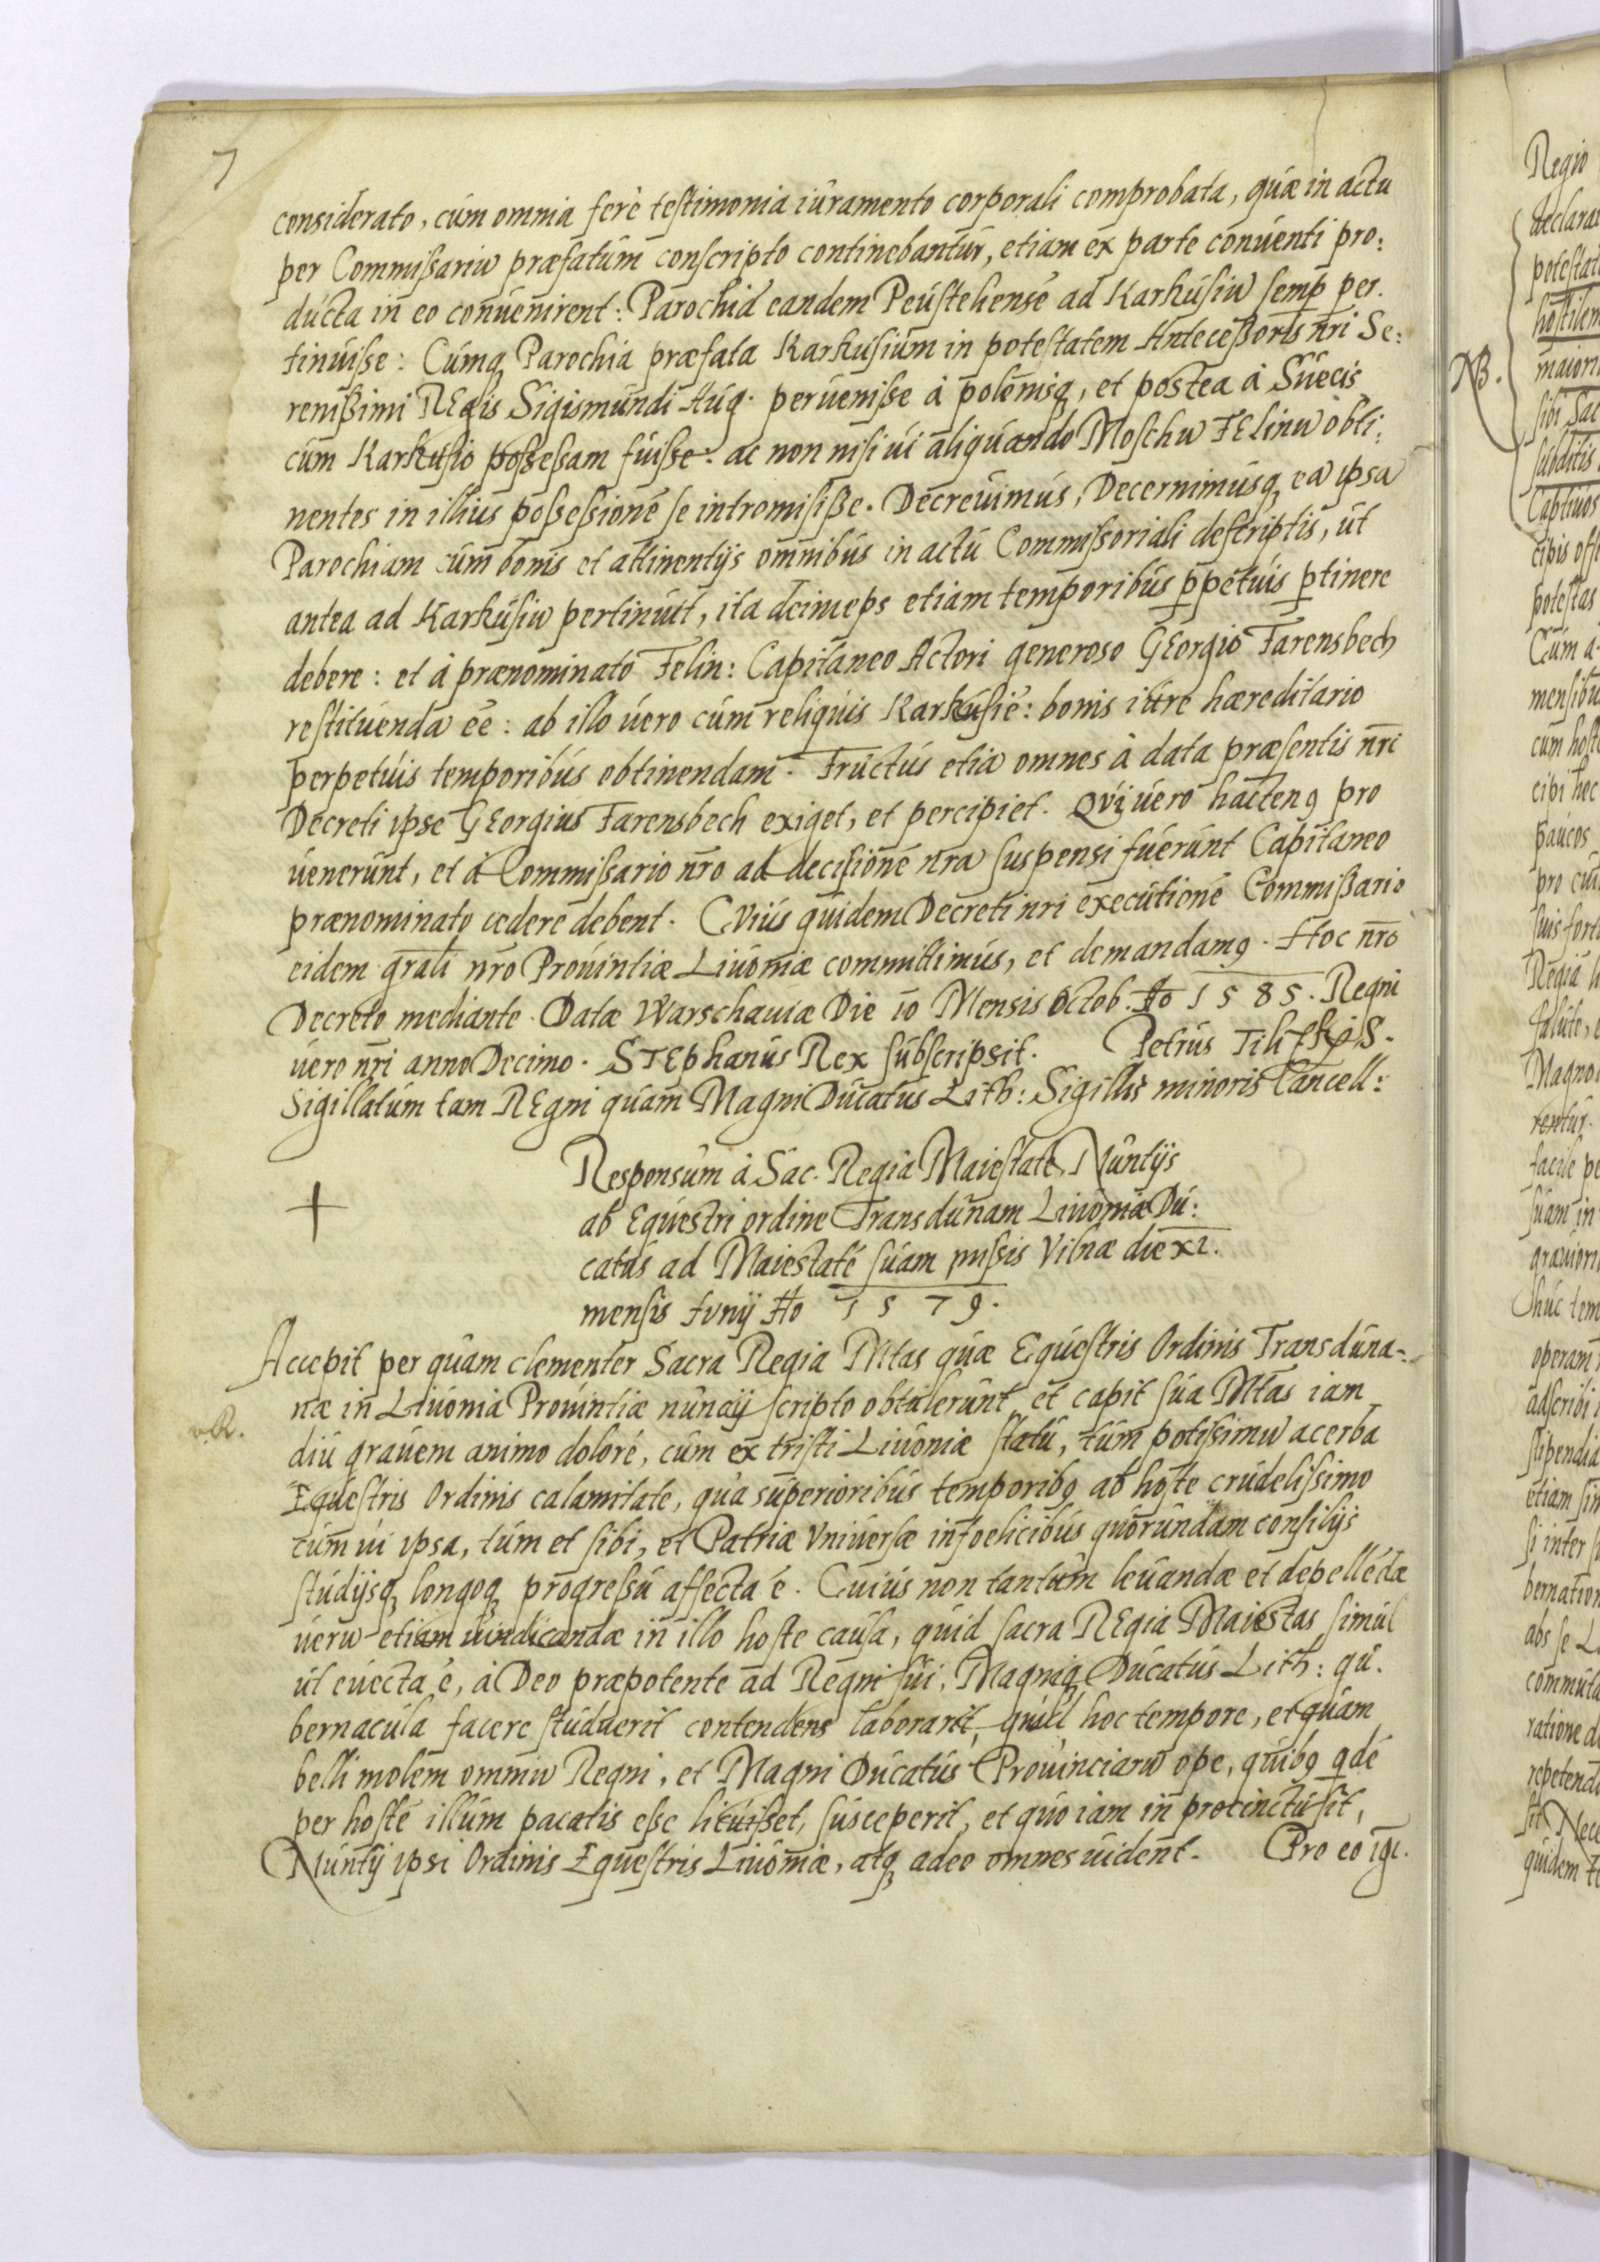 7
considerato, cúm omnia ferè testimonia iúramento corporali comprobata, quæ in actu
per Commißariū præfatúm conscripto continebantúr, etiam ex parte conúenti pro:
dúcta in eo conúenirent: Parochiā eandem Peústehensē ad Karkúsiū semp per.
tinúisse: Cúmqꝫ Parochia præfata Karkusiúm in potestatem Anteceßoris nr̄i Se:
renißimi REgis Sigismúndi Aúg. perúenisse à polemisqꝫ, et postea à Súecis
cúm Karkusio poßeßam fúisse: ac non nisi úi aliqúando Moschū FElinū obti:
nentes in illius poßeßionē se intromisiße. Decreúimús, Decernimúsqꝫ eā ipsā
Parochiam cúm bonis et attinentijs omnibús in actú Commißoriali descriptis, út
antea ad Karkúsiū pertinúit, ita deinceps etiam temporibús ꝑpetúis ꝑtinere
debere: et à prænominato Felin: Capitaneo Actori generoso GEorgio Farensbech
restitúendā ēē: ab illo úero cúm reliqúis Karkúsiē: bonis iúre hæreditario
perpetúis temporibús obtinendam. Frúctús etiā omnes à data præsentis nr̄i
Decreti ipse GEorgius Farensbech exiget, et percipiet. Qúi úero hactenꝰ pro
úenerúnt, et à Commißario nr̄o ad decisionē nr̄ā súspensi fúerúnt Capitaneo
prænominato cedere debent. CViús qúidem Decreti nr̄i execútionē Commißario
eidem gr̄ali nr̄o Proúintiæ Liúoniæ committimús, et demandamꝰ. Hoc nr̄o
Decreto mediante. Datæ Warschauiæ Die 10 Mensis Octob. Ao 1585. Regni
úero nr̄i anno Decimo. STEphanús Rex súbscripsit. Petrús
Sigillatúm tam REgni qúam Magni Dúcatús Lith: Sigillis minoris Cancell:
Responsúm à Sac. Regia Maiestate, Núntijs
ab Eqúestri ordine Transdúnam Liúoniæ Dú:
catús ad Maiestatē súam mißis Vilnæ die XI.
mensis Iunij Ao 1579.
Accepit per qúam clementer Sacra Regia Mtas qúæ Eqúestris Ordinis Transdúna-
næ in Liúonia Proúintiæ núncij scripto obtúlerúnt, et capit súa Mtas iam
diú graúem animo dolorē, cúm ex tristi Liúoniæ statú, túm potißimū acerba
Eqúestris Ordinis calamitate, qúa súperioribús temporibꝰ ab hoste crúdelissimo
túm úi ipsa, túm et sibi, et Patriæ Vniúersæ infoelicibús qúorúndam consilijs
stúdijsqꝫ longoqꝫ progreßú affecta ē. Cuiús non tantúm leúandæ et depellēdæ
úerū etiam úindicandæ in illo hoste caúsa, qúid sacra REgia Maiestas simúl
út eúecta ē, à Deo præpotente ad Regni súi, Magniqꝫ Dúcatús Lith: gú.
bernacúla facere stúdúerit contendens laborarit, qúid hoc tempore, et qúam
belli molem omniū Regni, et Magni Dúcatús Proúinciarū ope, qúibꝰ qdē
per hostē illúm pacatis eße licúißet, súsceperit, et qúo iam in procinctú sit,
Núntij ipsi Ordinis Eqúestris Liúoniæ, atqꝫ adeo omnes úident. Pro eo igi.
NB.